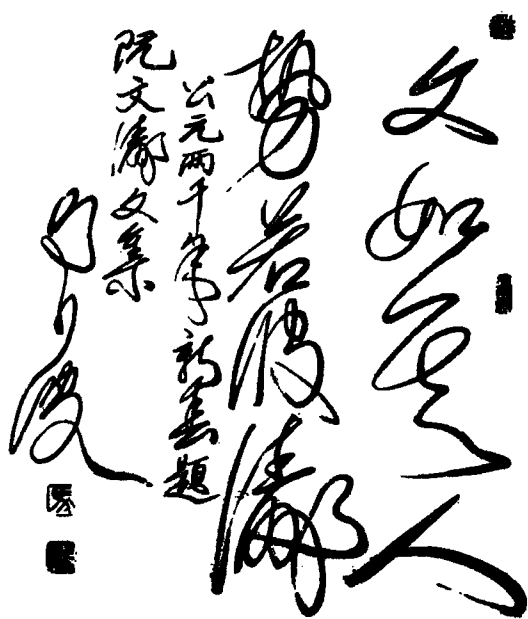 文如其人
势若波涛
公元两千年新春题
阮文涛文集